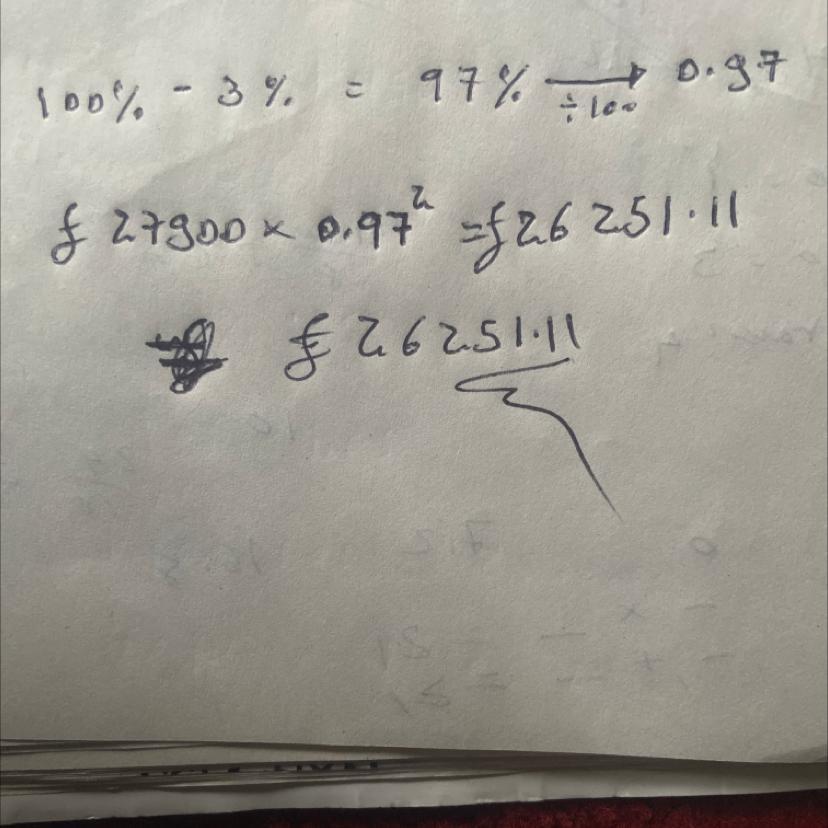 100% - 3% = 97% ⟶ 0.97
÷100
£27900 × 0.97² = £26251.11
£26251.11